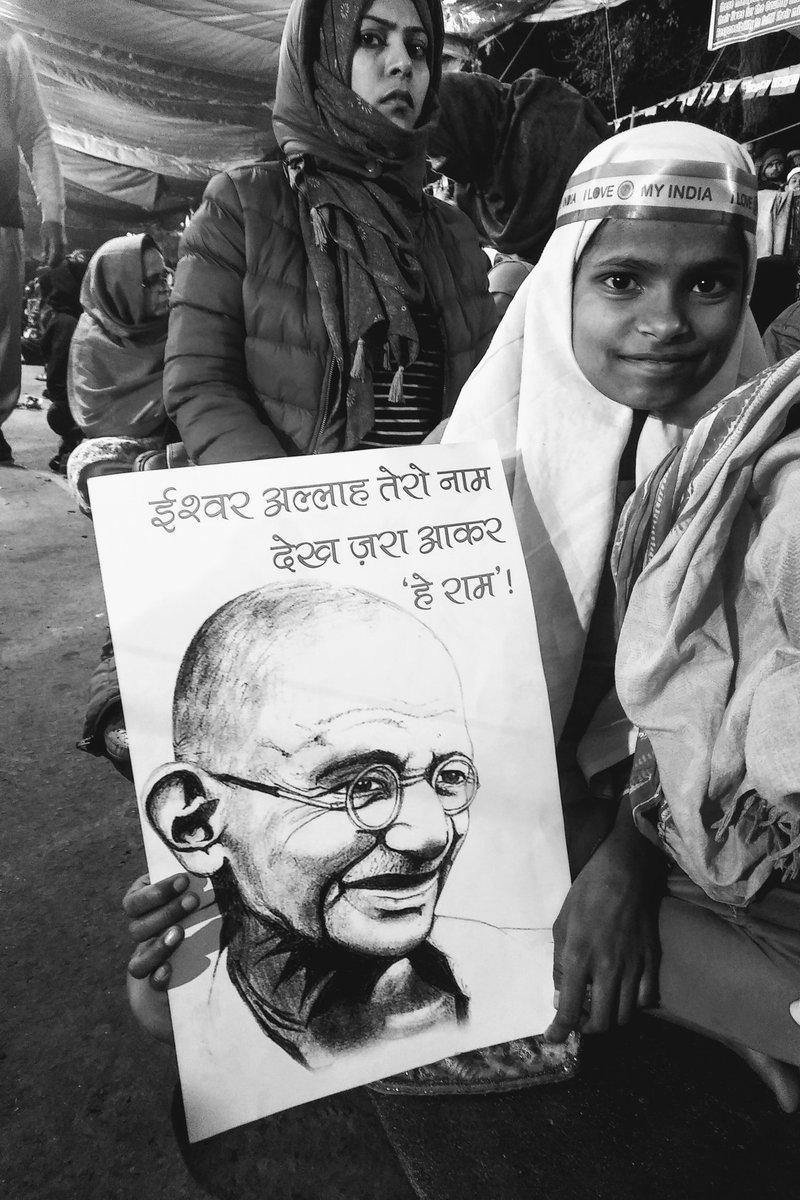 I LOVE MY INDIA I LOVE
ईश्वर अल्लाह तेरो नाम
देख ज़रा आकर
'हे राम'!